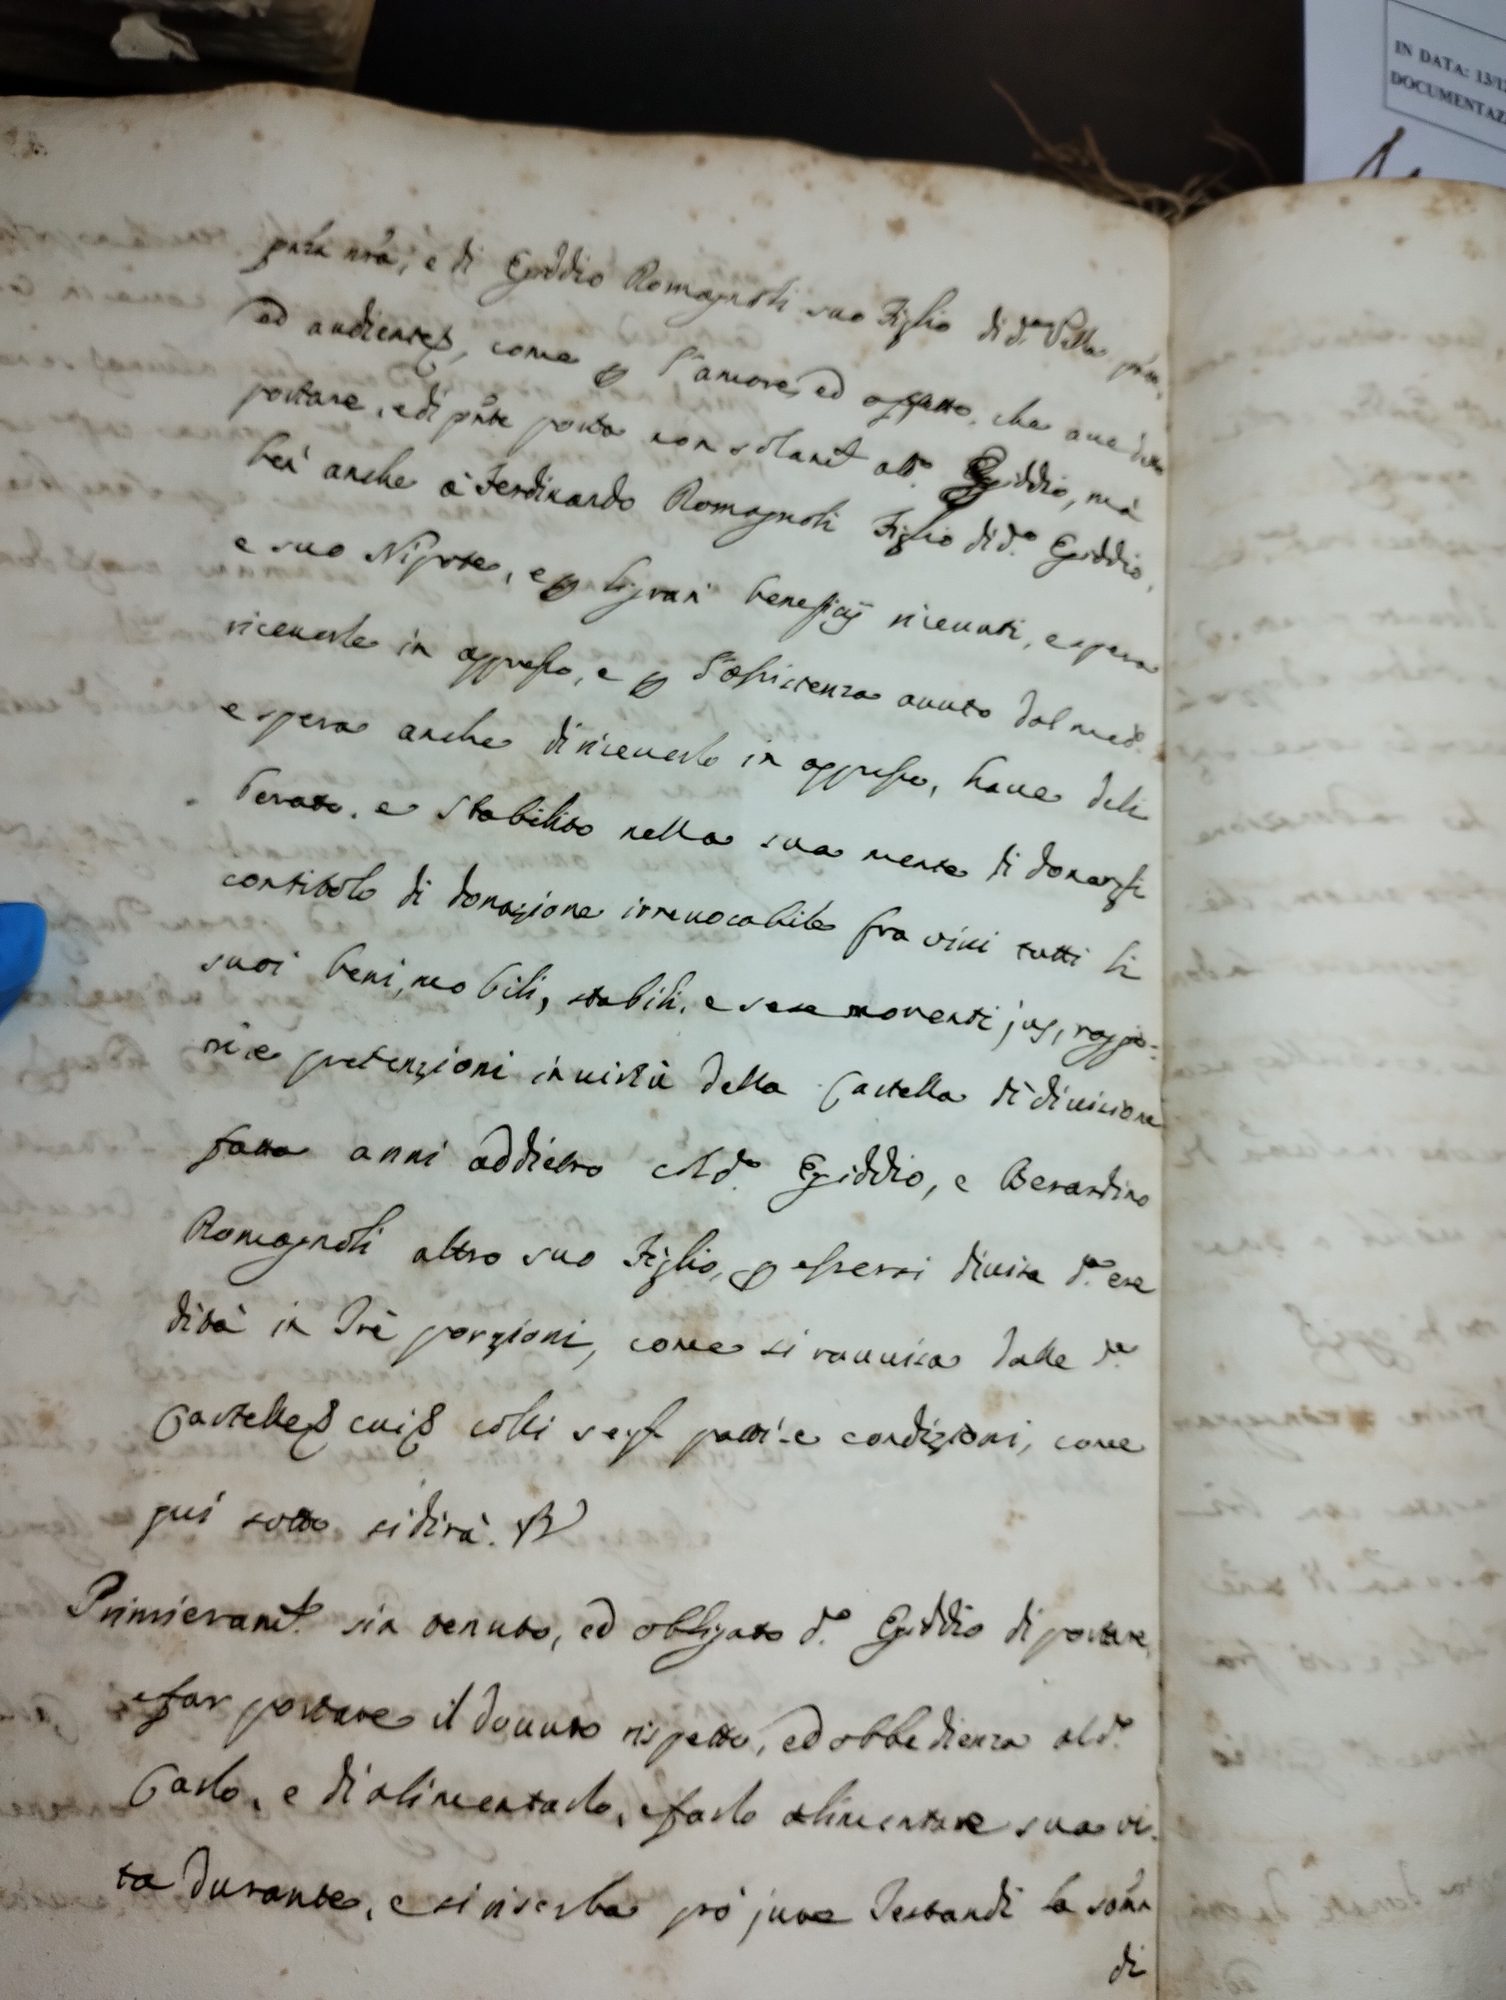 IN DATA: 13/12
DOCUMENTAZ
pñza nrã, e di Egiddio Romagnoli suo Figlio di d.ª Villa pñte,
ed audiente, come ꝑ l'amore, ed affetto, che ave
portare, e di pñte porta non solamẽ al d.º Egiddio, mà
ben' anche à Ferdinando Romagnoli Figlio di d.º Egiddio,
e suo Nipote, e ꝑ li gran' beneficij ricevuti, e spera
riceverle in appresso, e ꝑ l'assistenza avuto dal med.º
e spera anche di riceverlo in appresso, have deli
berato, e stabilito nella sua mente di donarsi
con titolo di donazione irrevocabile fra vivi tutti li
suoi beni, mobili, stabili, e sese moventi jus, raggio=
ni e pretenzioni in virtù della Cartella di divisione
fatta anni addietro col d.º Egiddio, e Berardino
Romagnoli altro suo Figlio, ꝑ essersi divisa d.ª ere
dità in Trè porzioni, come si ravvisa dalle d.e
Cartelle cui colli segĩ patti e condizioni, come
quì sotto si dirà.
Primieramẽ sia tenuto, ed obbligato d.º Egiddio di portare,
e far portare il dovuto rispetto, ed obbedienza al d.º
Carlo, e di alimentarlo, e farlo alimentare sua vi-
ta durante, e si riserba prò jure Testandi la soña
di